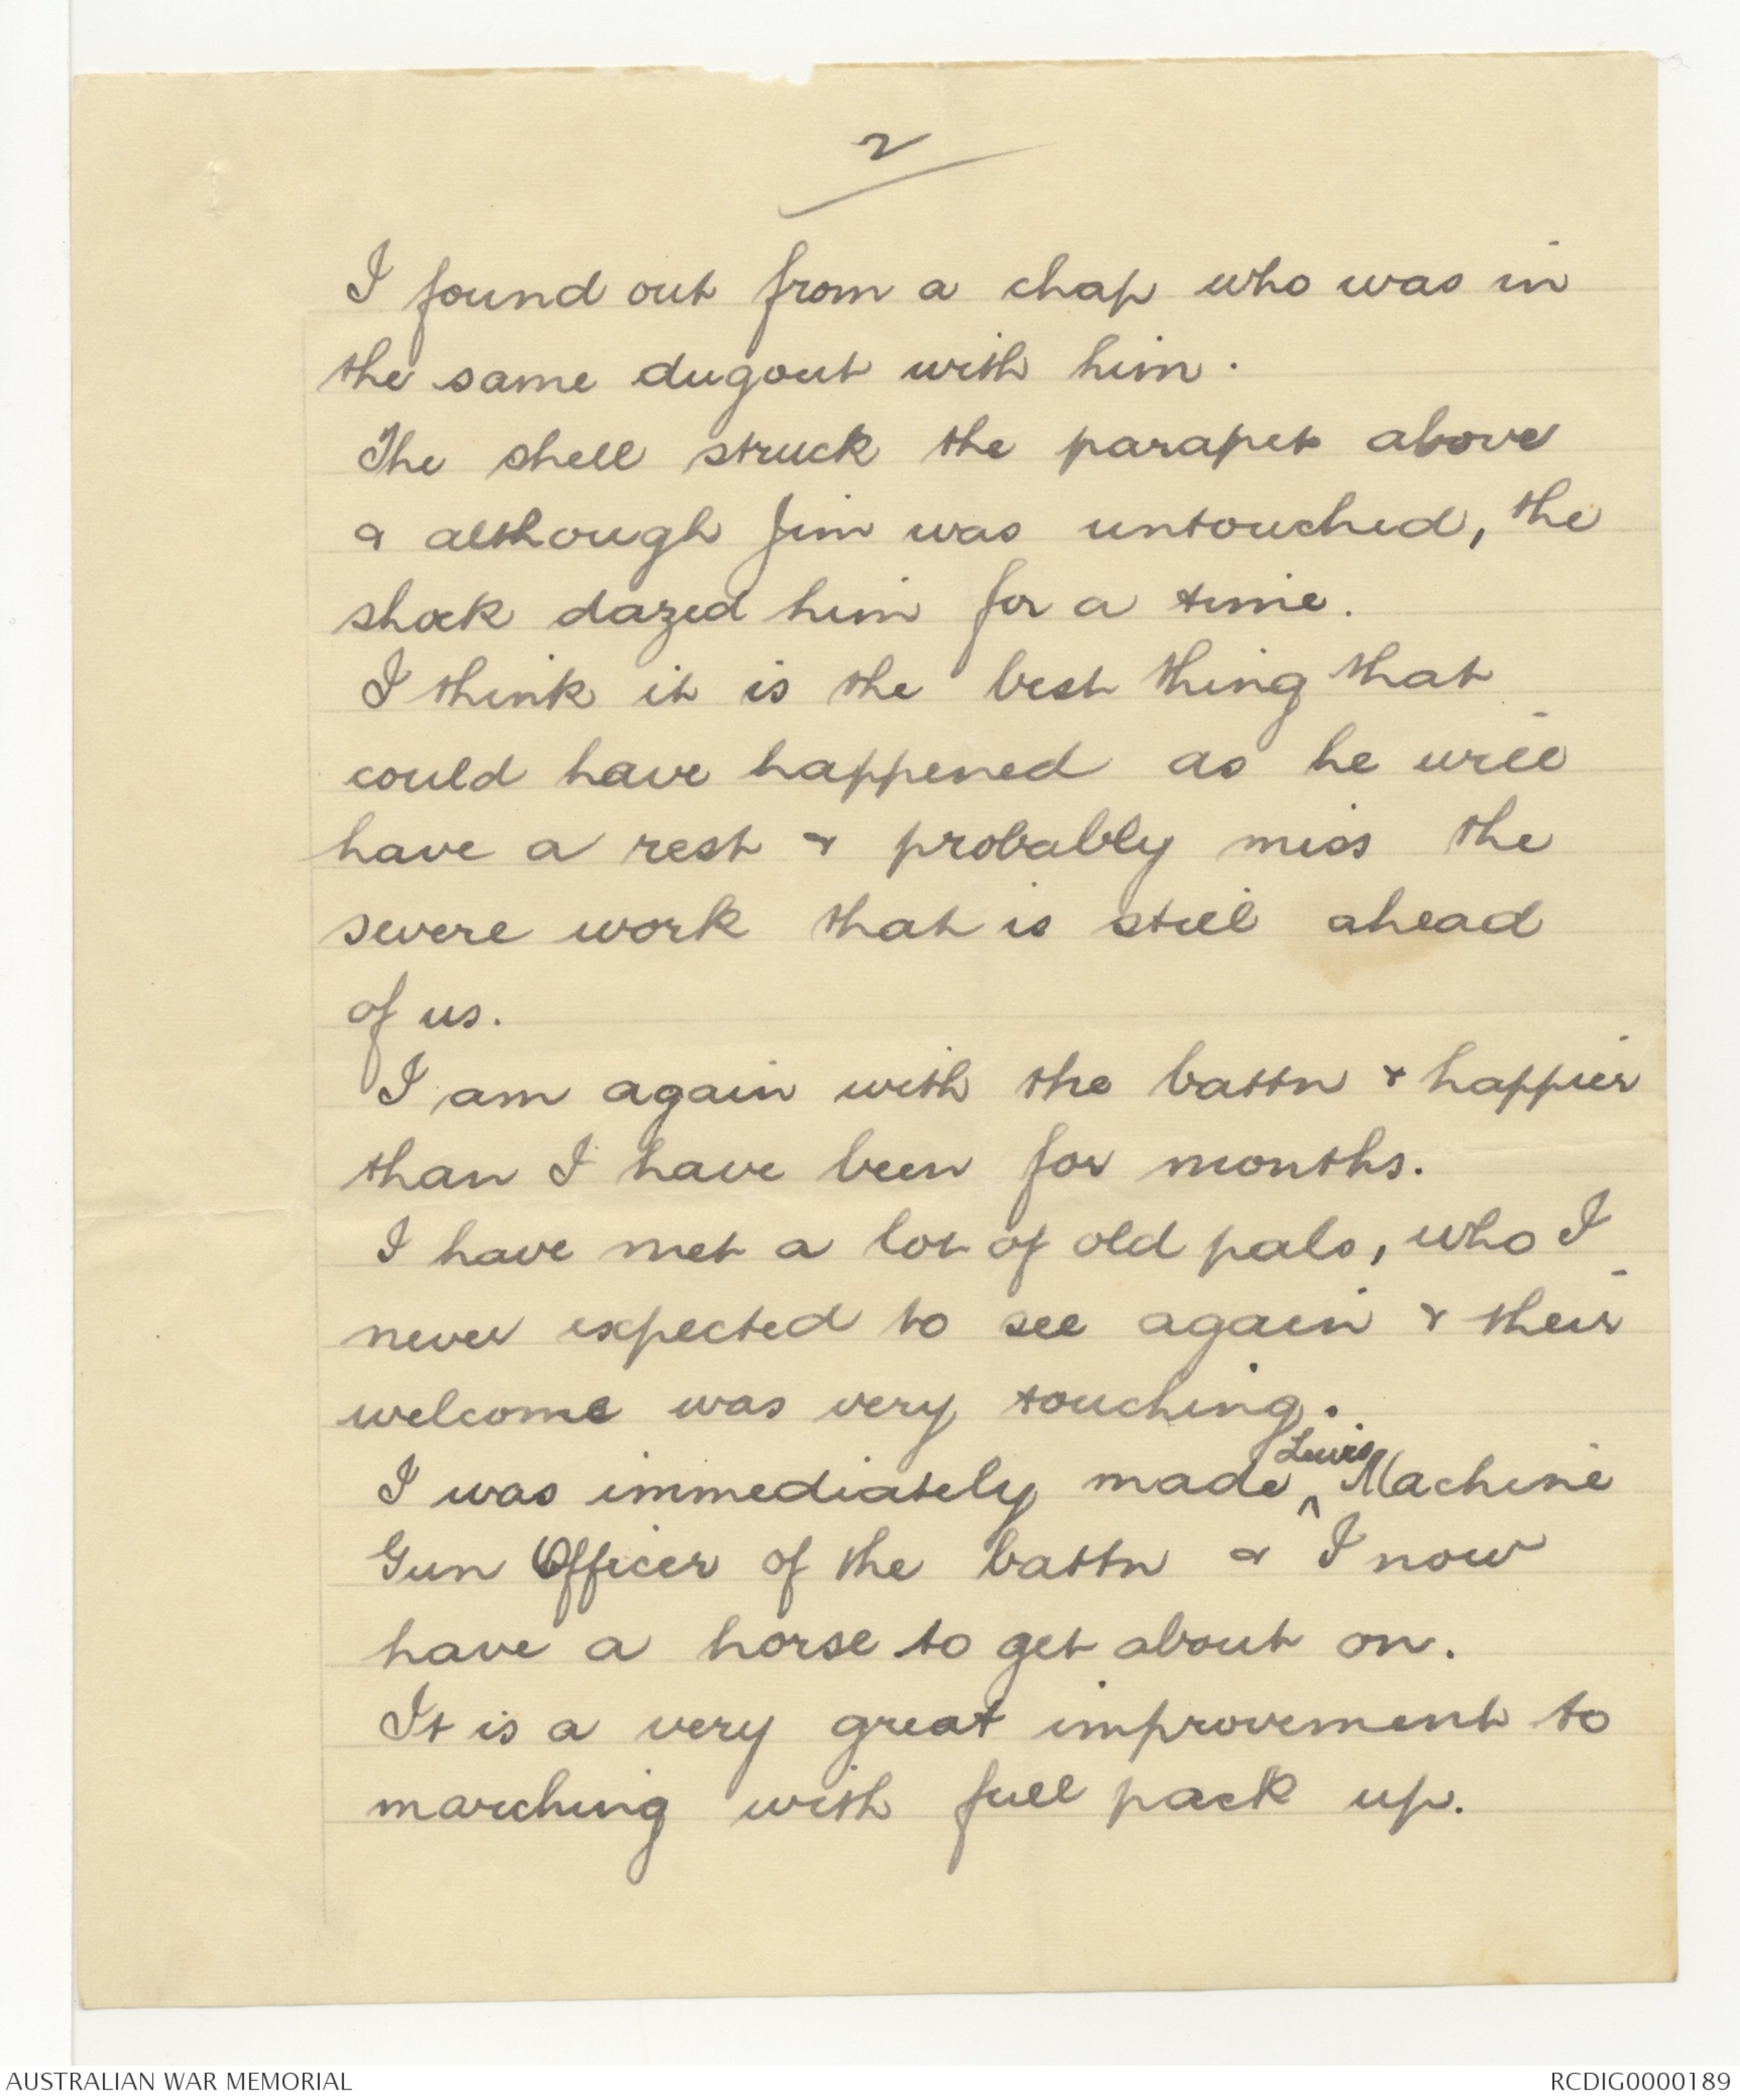 2
I found out from a chap who was in
the same dugout with him.
The shell struck the parapet above
& although Jim was untouched, the
shock dazed him for a time.
I think it is the best thing that
could have happened as he will
have a rest & probably miss the
severe work that is still ahead
of us.
I am again with the battn & happier
than I have been for months.
I have met a lot of old pals, who I
never expected to see again & their
welcome was very touching.
I was immediately made ^Lewis Machine
Gun Officer of the battn & I now
have a horse to get about on.
It is a very great improvement to
marching with full pack up.
AUSTRALIAN WAR MEMORIAL RCDIG0000189